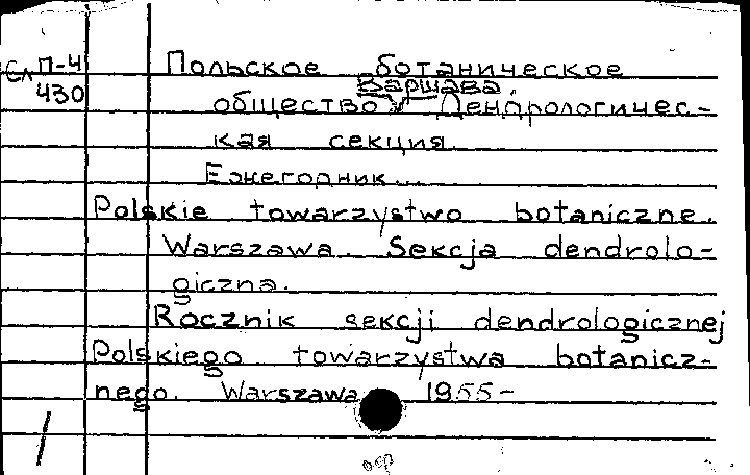 Сл П-4
430
Польское ботаническое
Варшава.
общество Дендрологичес-
кая секция.
Ежегодник.
Polskie towarzystwo botaniczne.
Warszawa. Sekcja dendrolo-
giczna.
Rocznik sekcji dendrologicznej
Polskiego towarzystwa botanicz-
nego. Warszawa 1955-